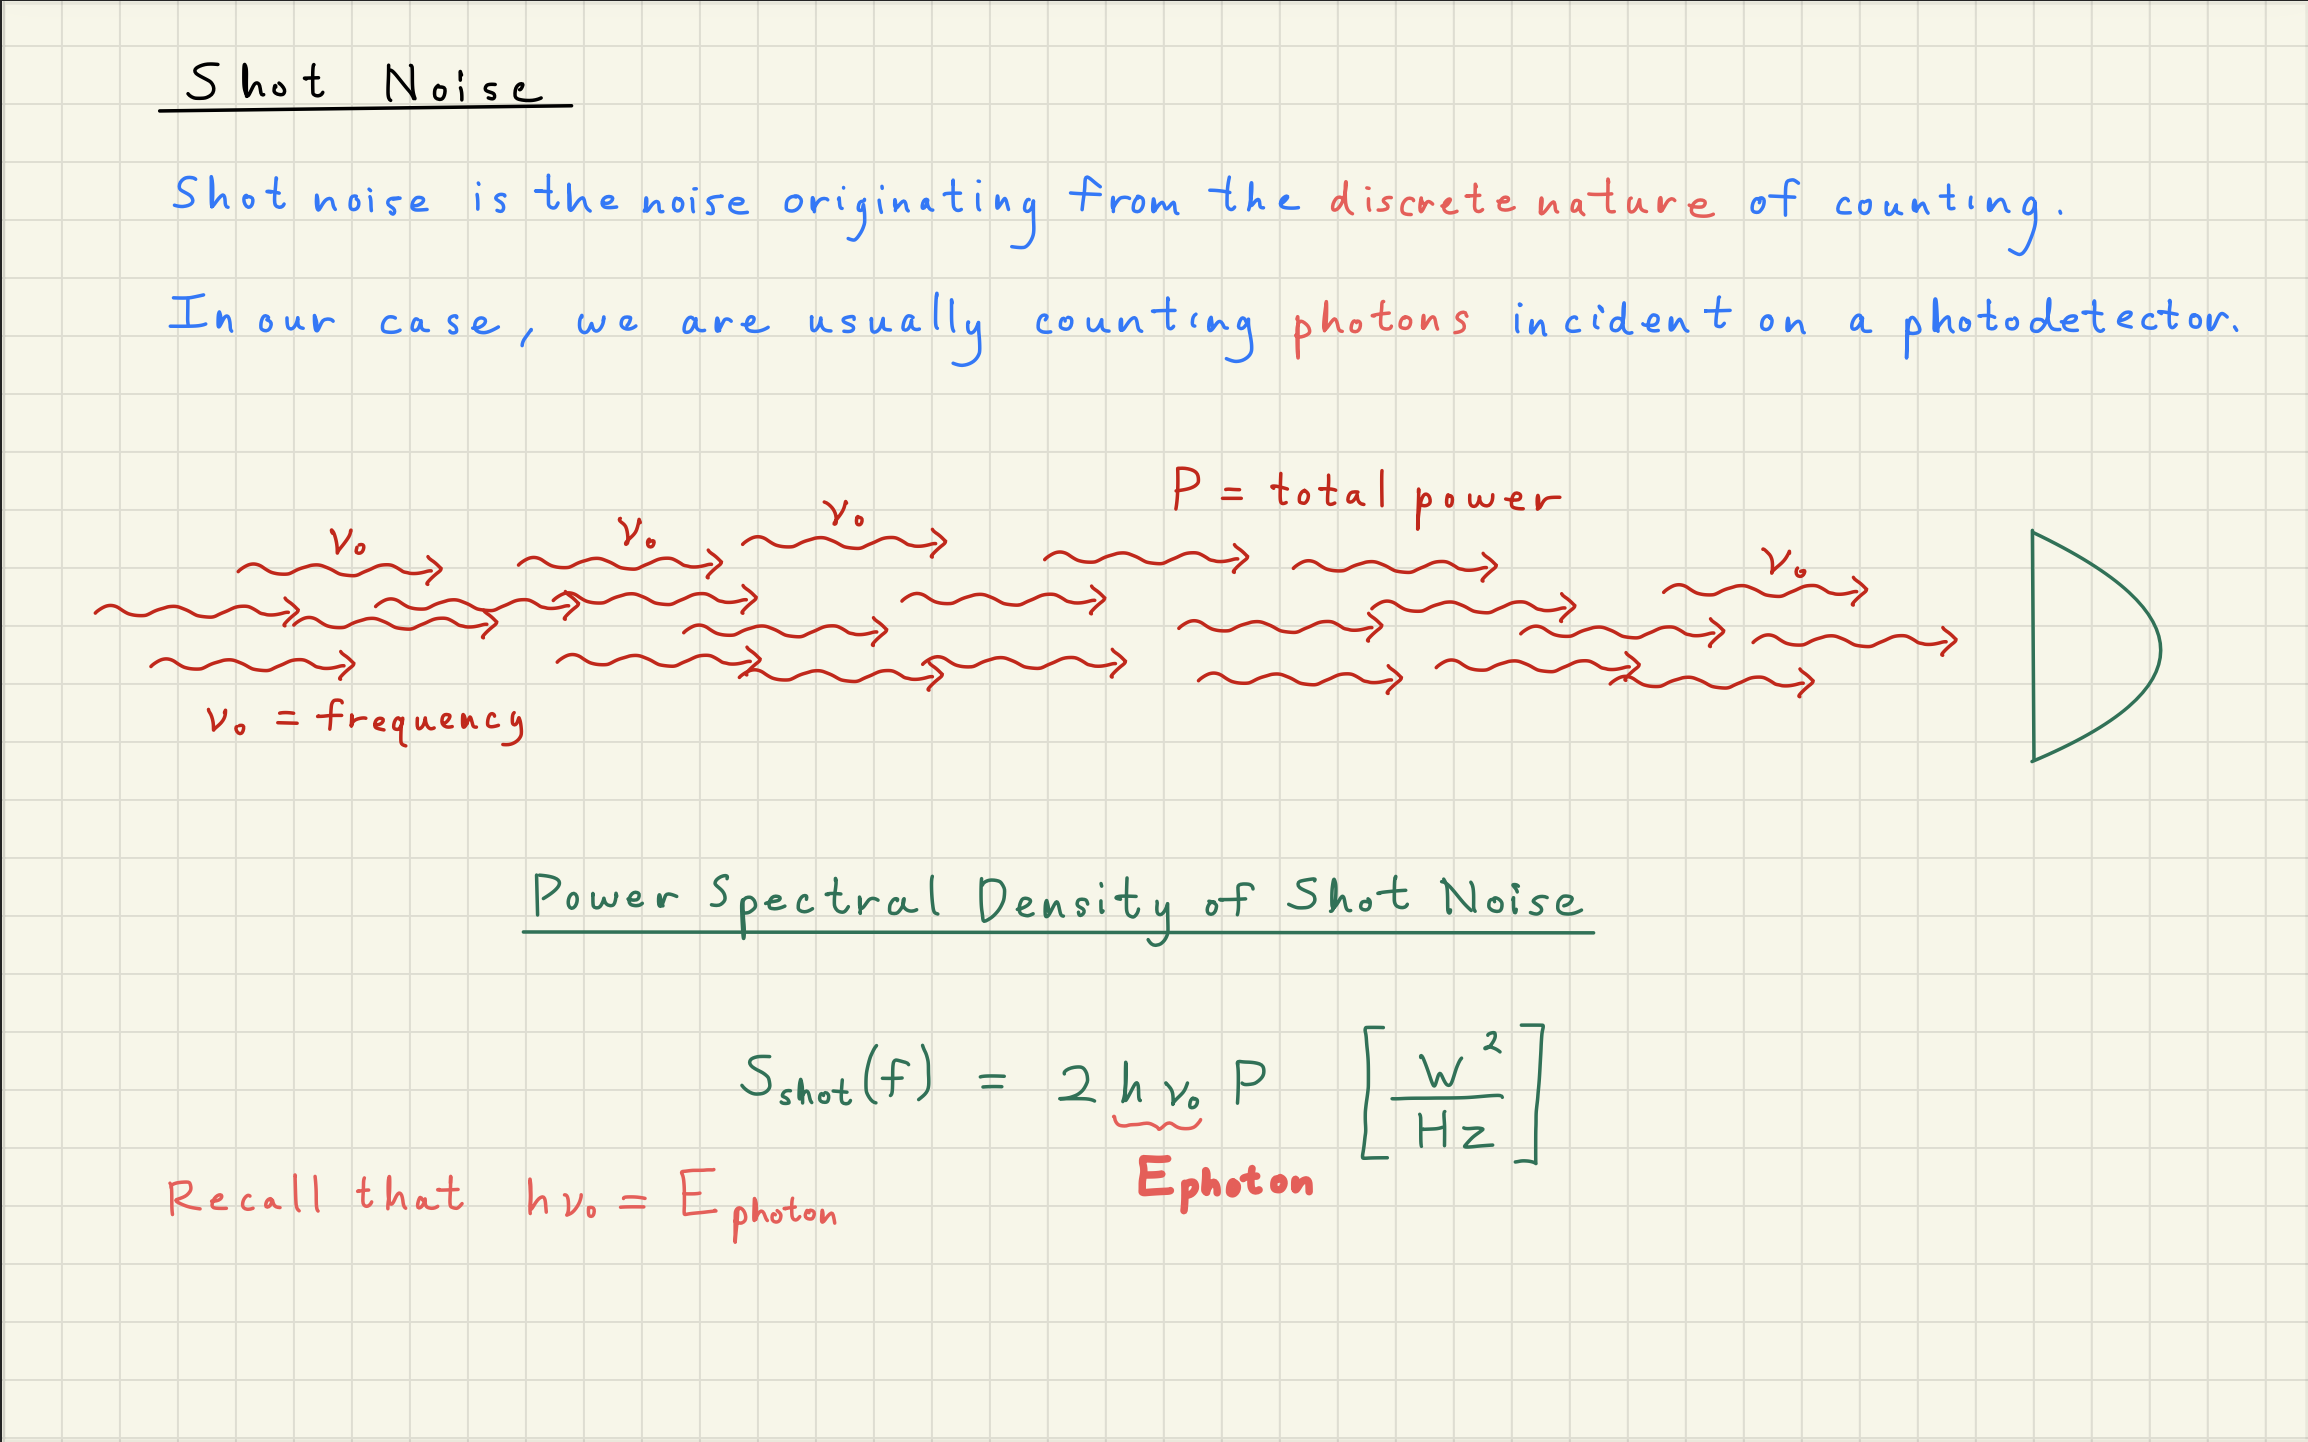 Shot Noise
Shot noise is the noise originating from the discrete nature of counting.
In our case, we are usually counting photons incident on a photodetector.
P = total power
ν₀ ν₀ ν₀ ν₀
ν₀ = frequency
Power Spectral Density of Shot Noise
S_shot(f) = 2 h ν₀ P [W²/Hz]
E_photon
Recall that hν₀ = E_photon